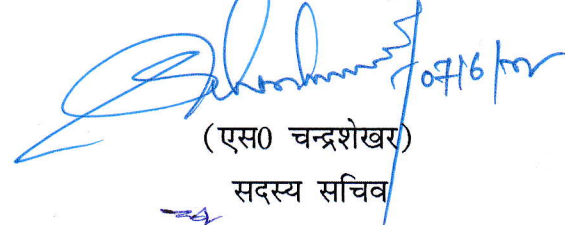 07/6/
(एस0 चन्द्रशेखर)
सदस्य सचिव